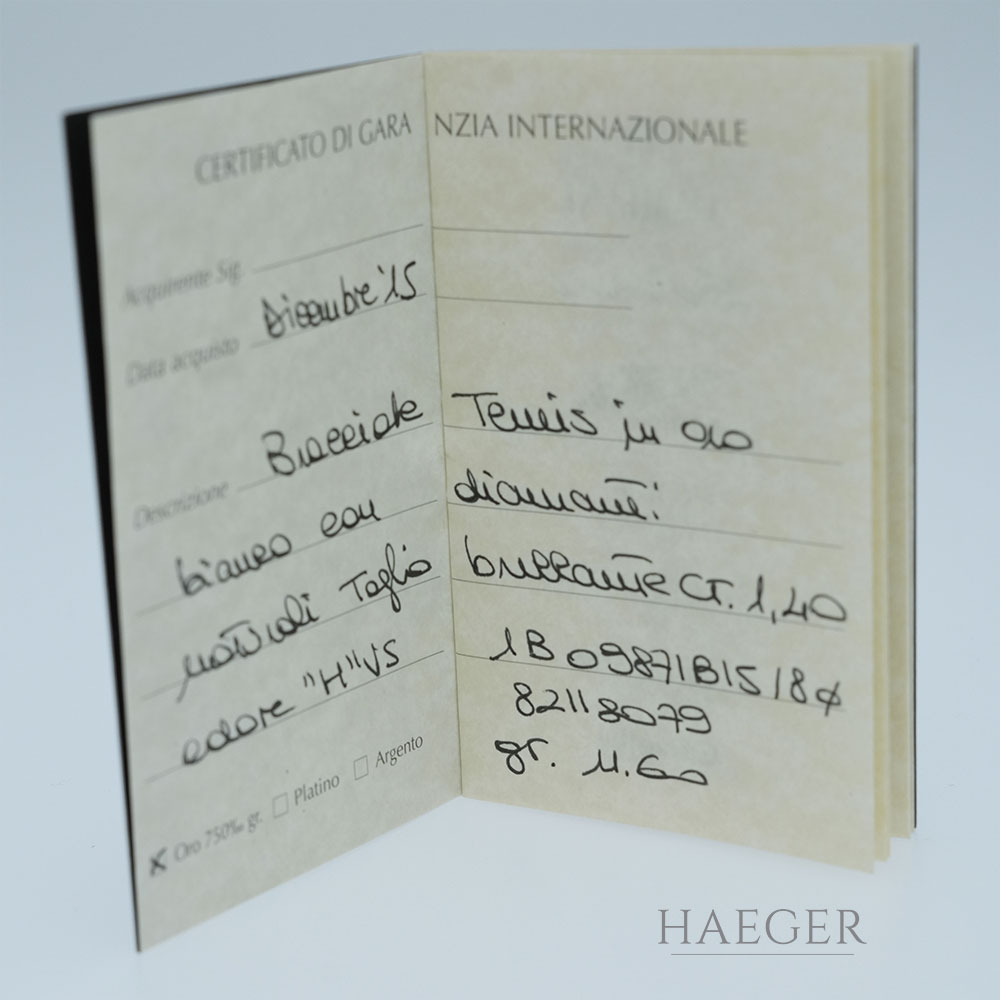 CERTIFICATO DI GARANZIA INTERNAZIONALE
Acquirente Sig.
Data acquisto Dicembre '15
Descrizione Bracciale Tennis in oro
bianco con diamanti
naturali Taglio brillante CT. 1,40
colore "H" VS 1B09871B15/8
82118079
gr. 11.60
x Oro 750‰ gr. Platino Argento
HAEGER